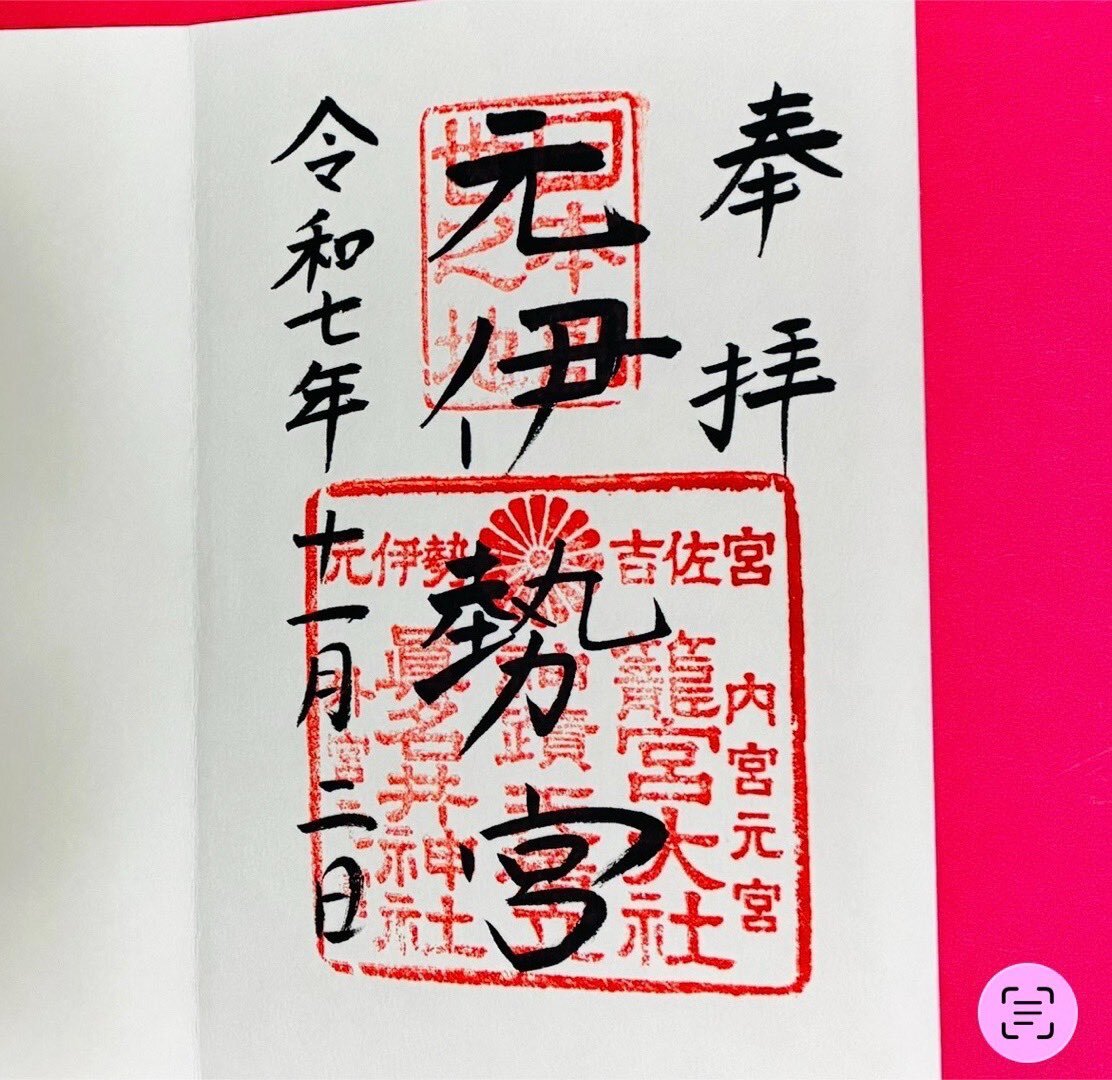 奉拝
元伊勢宮
令和七年十一月二日
日本
之地
元伊勢 吉佐宮
内宮元宮
籠宮大社
眞名井神社
外宮